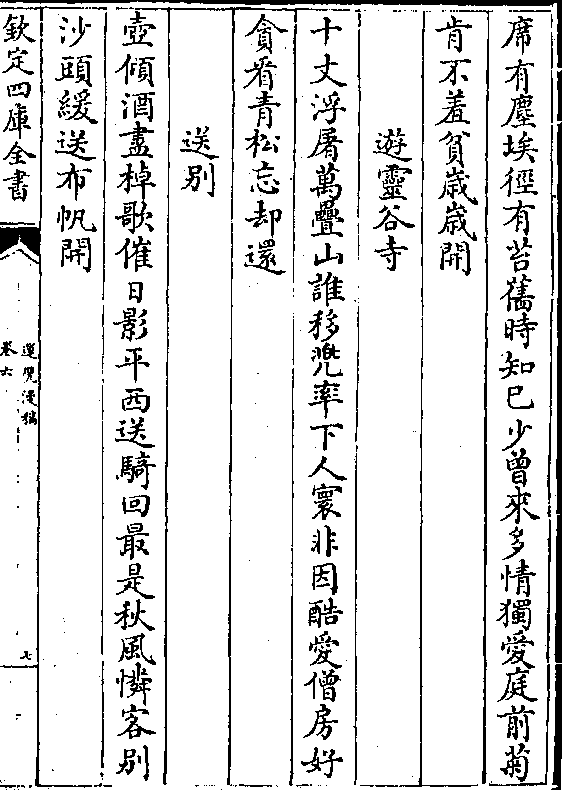 席有塵埃徑有苔舊時知已少曾來多情獨愛庭前菊
肯不羞貧歲歲開
遊靈谷寺
十丈浮屠萬疊山誰移兜率下人寰非因酷愛僧房好
貪看青松忘却還
送别
壺傾酒盡棹歌催日影平西送騎回最是秋風憐客别
沙頭緩送布帆開
欽定四庫全書
運甓漫稿
卷六
七